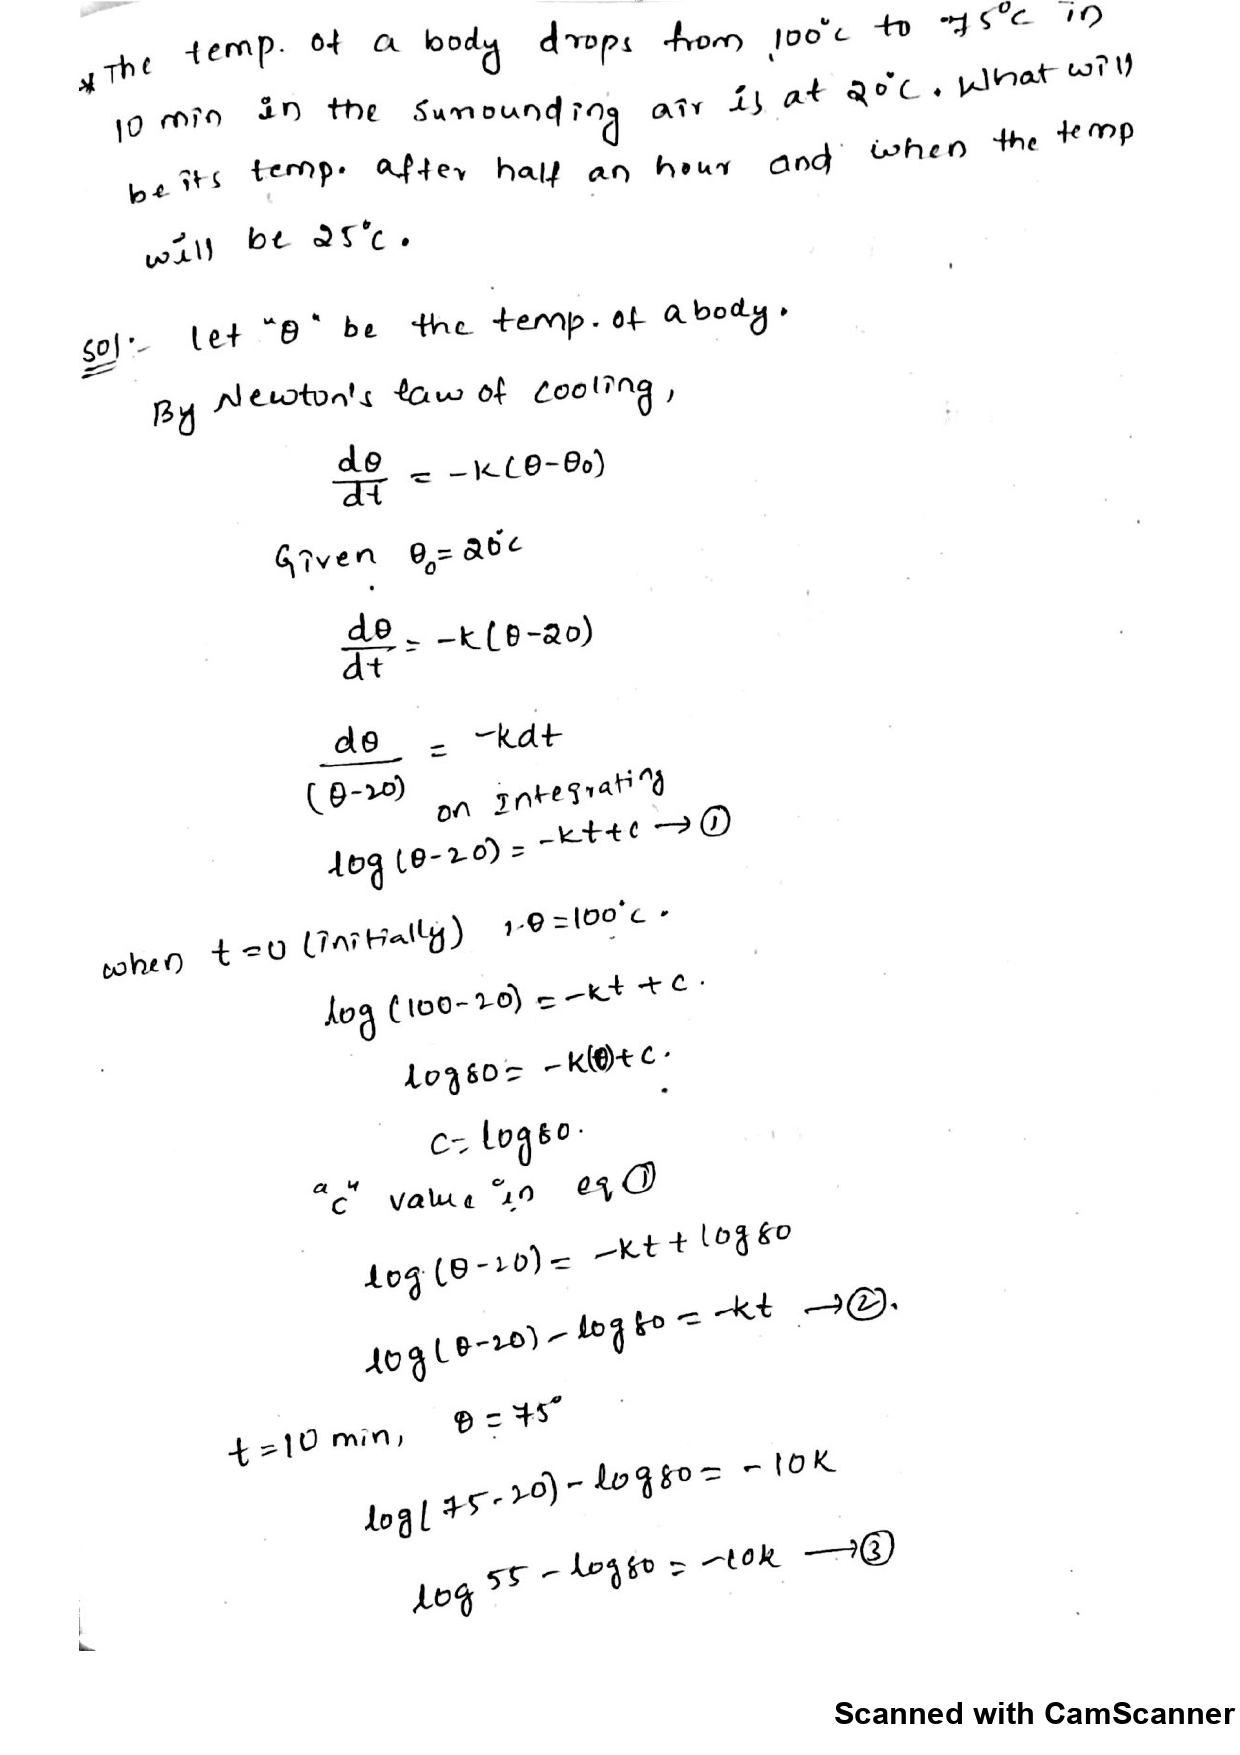 * The temp. of a body drops from 100°c to 75°c in
10 min in the surrounding air is at 20°c. What will
be its temp. after half an hour and when the temp
will be 25°c.
Sol:- Let "θ" be the temp. of a body.
By Newton's law of cooling,
dθ/dt = -k(θ-θ₀)
Given θ₀ = 20°c
dθ/dt = -k(θ-20)
dθ/(θ-20) = -kdt
on Integrating
log(θ-20) = -kt+c → ①
when t=0 (initially), θ=100°c.
log(100-20) = -kt+c.
log80 = -k(0)+c.
c= log80.
"c" value in eq ①
log(θ-20) = -kt+log80
log(θ-20)-log80 = -kt → ②.
t=10 min, θ=75°
log(75-20)-log80 = -10k
log 55-log80 = -10k → ③
Scanned with CamScanner